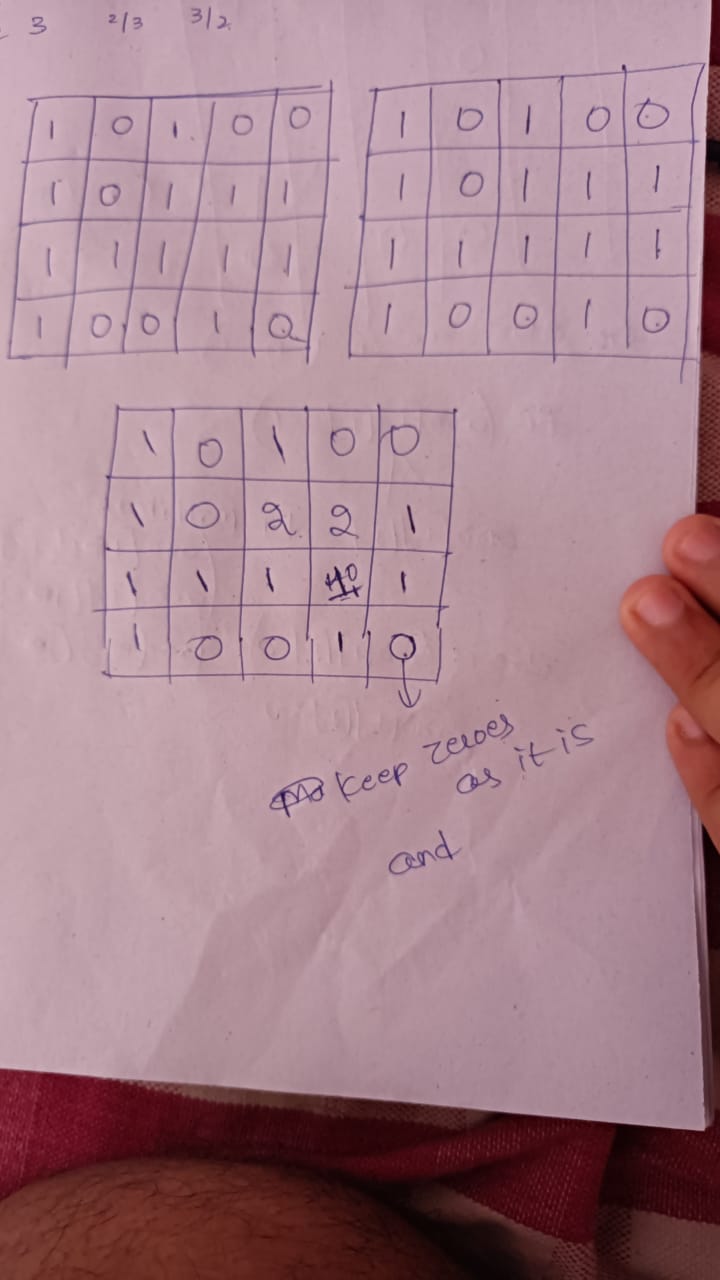 3 2/3 3/2
1 0 1 0 0
1 0 1 1 1
1 1 1 1 1
1 0 0 1 0
1 0 1 0 0
1 0 1 1 1
1 1 1 1 1
1 0 0 1 0
1 0 1 0 0
1 0 2 2 1
1 1 1 1
1 0 0 1 0
keep zeroes
as it is
and